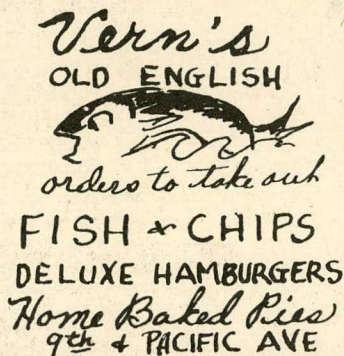 Vern's
OLD ENGLISH
orders to take out
FISH & CHIPS
DELUXE HAMBURGERS
Home Baked Pies
9th & PACIFIC AVE